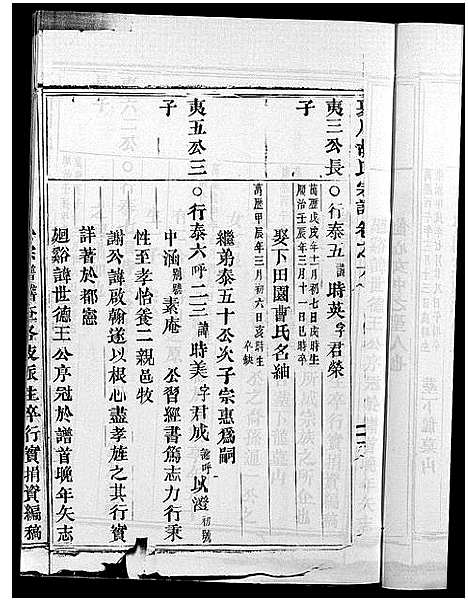 夷三公長子
○行泰五諱時英字君榮
萬曆戊戌年十一月初七日戌時生
順治壬辰年三月十一日巳時卒
娶下田園曹氏名紬
萬曆甲辰年三月初六日亥時生
卒缺
繼弟泰五十公次子宗惠爲嗣
夷五公三子
○行泰六呼二三諱時美字君成說呼以澄初號
中涵別號素庵公習經書篤志力行秉
性至孝怡養二親邑牧
謝公諱啟翰遂以根心盡孝旌之其行實
詳著於都憲
廻谿諱世德王公序冠於譜首晚年矢志
各支派生卒行實捐資編稿